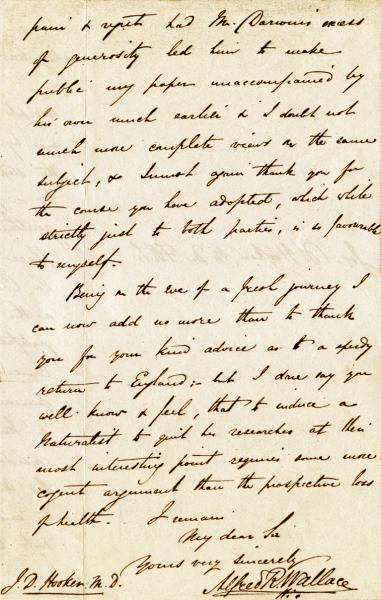 pain & regret had Mr. Darwin's excess
of generosity led him to make
public my paper unaccompanied by
his own much earlier & I doubt not
much more complete views on the same
subject, & I must again thank you for
the course you have adopted, which while
strictly just to both parties, is so favourable
to myself.
Being on the eve of a fresh journey I
can now add no more than to thank
you for your kind advice as to a speedy
return to England:- but I dare say you
well know & feel, that to induce a
Naturalist to quit his researches at their
most interesting point requires some more
cogent argument than the prospective loss
of health. I remain
My dear Sir
Yours very sincerely
J. D. Hooker. M. D.
Alfred R. Wallace